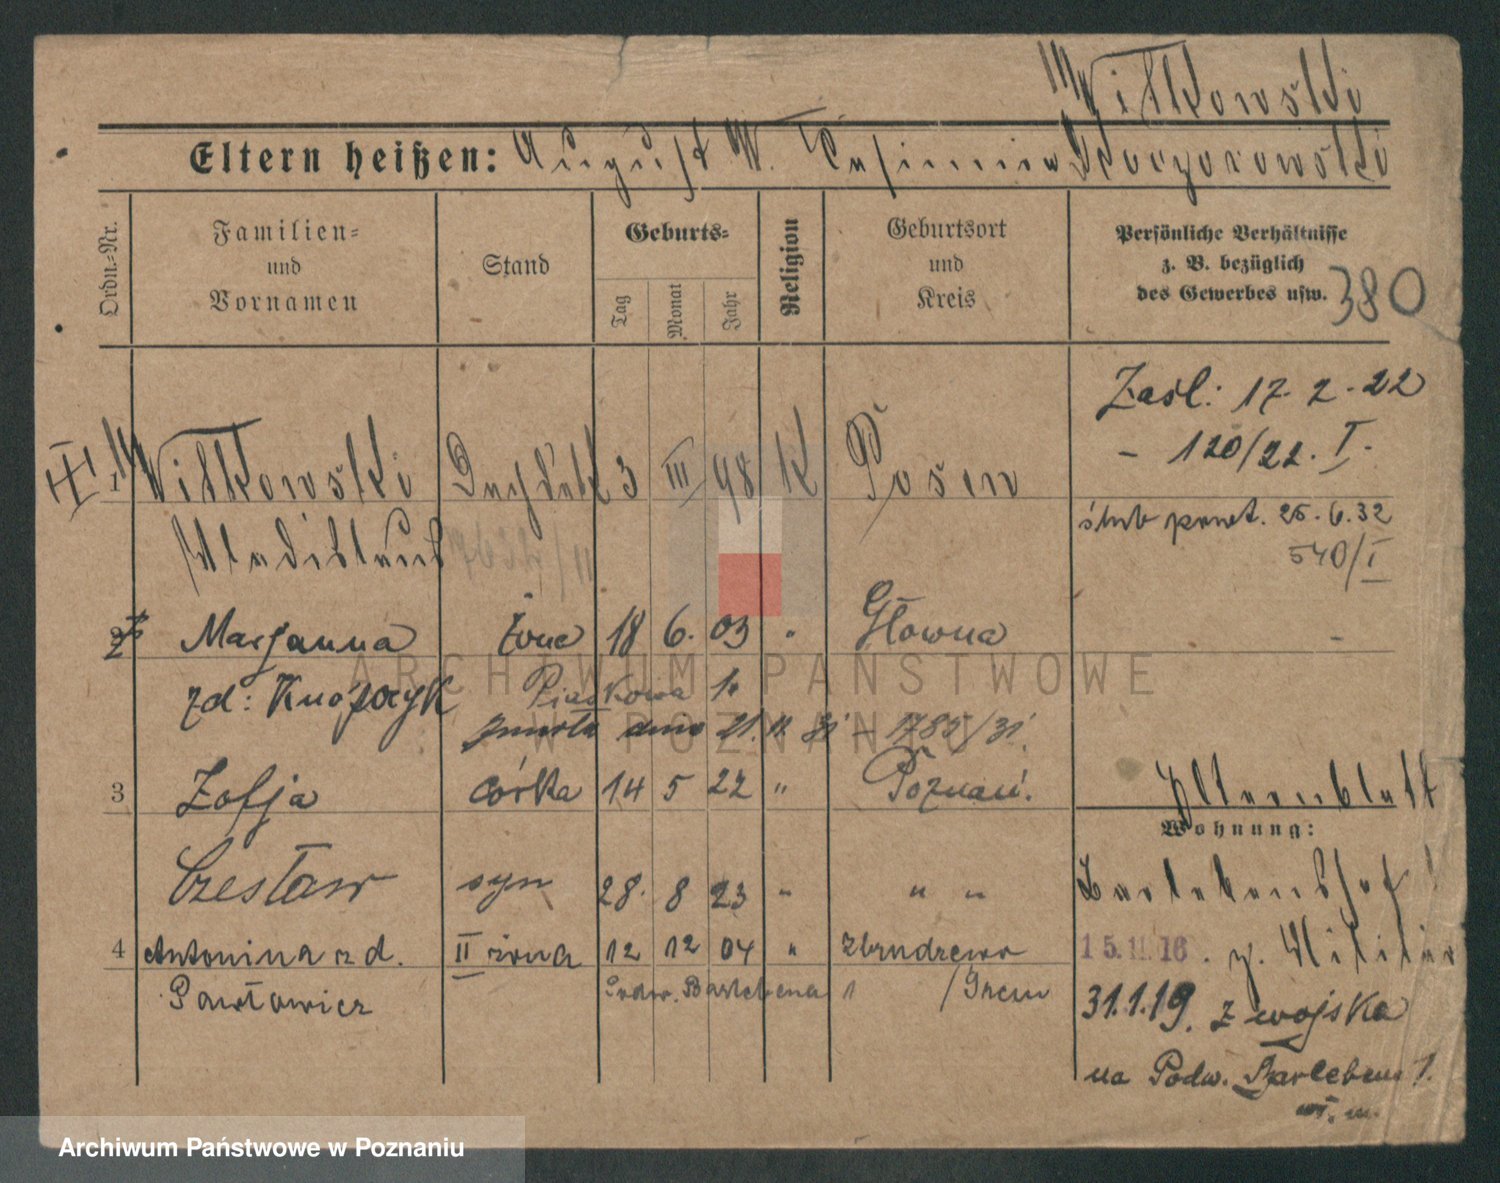 Witkowski
Eltern heißen: August W. Kasimira Skoczorowski
Ordn.-Nr.
Familien- und Vornamen
Stand
Geburts-
Tag
Monat
Jahr
Religion
Geburtsort und Kreis
Persönliche Verhältnisse
z. B. bezüglich
des Gewerbes usw. 380
Zaśl: 17-2-22
- 120/22. I.
1 Witkowski 3 III 98 K Posen
Wladislaus
ślub 25.6.32
540/I
2 Marjanna żona 18 6. 03 " Główna
zd:
Piaskowa 1
zmarła dnia 21. 11. 31 - 1785/31
3 Zofja córka 14 5 22 " Poznań.
Elternblatt
Wohnung:
Czesław syn 28. 8 23 " " "
Bartebenshof 1
4 Antonina zd. II żona 12 12 04 " Zbrudzewo
Pawłowicz
Podw. Bartebena 1 /Śrem
15.11.16. z. Militär
31.1.19. z wojska
na Podw. Bartebena 1.
ARCHIWUM PAŃSTWOWE
W POZNANIU
Archiwum Państwowe w Poznaniu